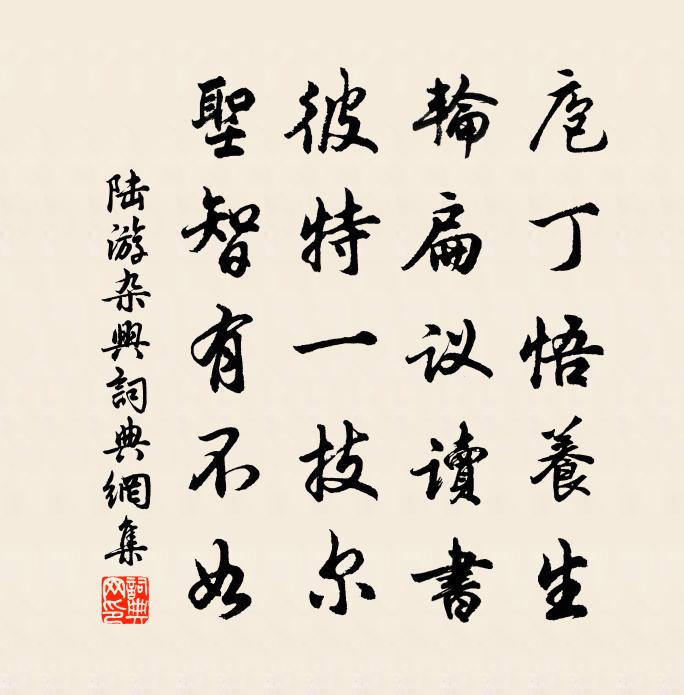 庖丁悟養生
輪扁议讀書
彼特一技尔
聖智有不如
陆游杂興詞典網集
詞典网印